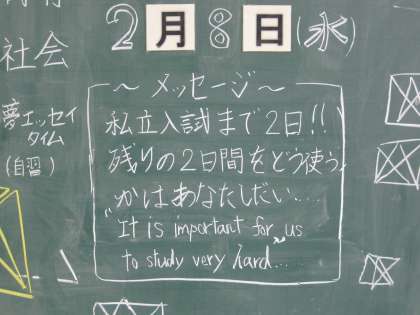 2月8日(水)
社会
夢エッセイ
タイム
(自習)
～メッセージ～
私立入試まで2日!!
残りの2日間をどう使う
かはあなたしだい...
"It is important for us
to study very hard...